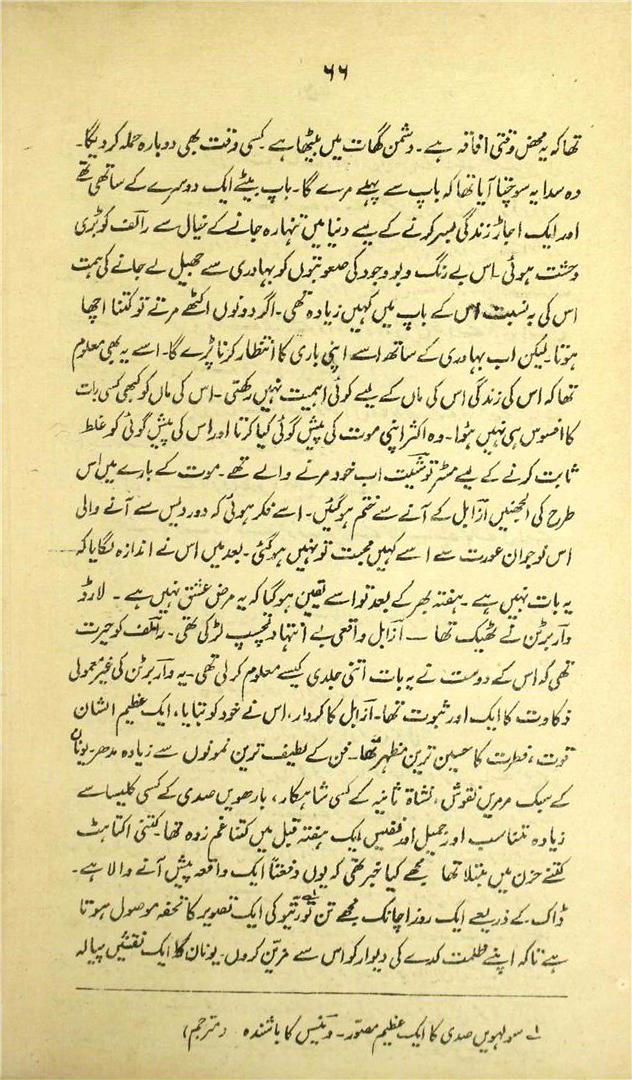 ۶۶
تھا کہ یہ محض وقتی افاقہ ہے۔ دشمن گھات میں بیٹھا ہے کسی وقت بھی دوبارہ حملہ کر دیگا۔
وہ سدا یہ سوچتا آیا تھا کہ باپ سے پہلے مرے گا۔ باپ بیٹے ایک دوسرے کے ساتھی تھے
اور ایک اجاڑ زندگی بسر کرنے کے لیے دنیا میں تنہا رہ جانے کے خیال سے رالف کو بڑی
وحشت ہوئی۔ اس بے رنگ و بو وجود کی صعوبتوں کو بہادری سے جھیل لے جانے کی ہمت
اس کی بہ نسبت اس کے باپ میں کہیں زیادہ تھی۔ اگر دونوں اکٹھے مرتے تو کتنا اچھا
ہوتا۔ لیکن اب بہادری کے ساتھ اسے اپنی باری کا انتظار کرنا پڑے گا۔ اسے یہ بھی معلوم
تھا کہ اس کی زندگی اس کی ماں کے لیے کوئی اہمیت نہیں رکھتی۔ اس کی ماں کو کبھی کسی بات
کا افسوس ہی نہیں ہوا۔ وہ اکثر اپنی موت کی پیش گوئی کیا کرتا اور اس کی پیش گوئی کو غلط
ثابت کرنے کے لیے مسٹر توشیت اب خود مرنے والے تھے۔ موت کے بارے میں اس
طرح کی الجھنیں ازابل کے آنے سے ختم ہو گئیں۔ اسے فکر ہوئی کہ دور دیس سے آنے والی
اس نوجوان عورت سے اسے کہیں محبت تو نہیں ہو گئی۔ بعد میں اس نے اندازہ لگایا کہ
یہ بات نہیں ہے۔ ہفتہ بھر کے بعد تو اسے یقین ہو گیا کہ یہ مرض عشق نہیں ہے۔ لارڈ
واربرٹن نے ٹھیک تھا — ازابل واقعی بے انتہا دلچسپ لڑکی تھی۔ رالف کو حیرت
تھی کہ اس کے دوست نے یہ بات اتنی جلدی کیسے معلوم کر لی تھی۔ یہ واربرٹن کی غیر معمولی
ذکاوت کا ایک اور ثبوت تھا۔ ازابل کا کردار، اس نے خود کو بتایا، ایک عظیم الشان
قوت، فطرت کا حسین ترین مظہر تھا۔ فن کے لطیف ترین نمونوں سے زیادہ مدھر۔ یونان
کے سبک مرمریں نقوش، نشاۃ ثانیہ کے کسی شاہکار، بارھویں صدی کے کسی کلیسا سے
زیادہ متناسب اور جمیل اور نفیس ایک ہفتہ قبل میں کتنا غم زدہ تھا کتنی اکتاہٹ
کتنے حزن میں مبتلا تھا مجھے کیا خبر تھی کہ یوں دفعتاً ایک واقعہ پیش آنے والا ہے۔
ڈاک کے ذریعے ایک روز اچانک مجھے تن تورتیو؎۱ کی ایک تصویر کا تحفہ موصول ہوتا
ہے تاکہ اپنے ظلمت کدے کی دیوار کو اس سے مزین کروں۔ یونان کا ایک نقشیں پیالہ
؎۱ سولہویں صدی کا ایک عظیم مصور۔ وینس کا باشندہ (مترجم)